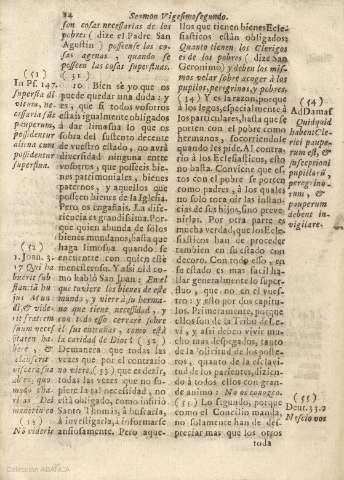 24 Sermon Vigesimosegundo.
son cosas necessarias de los
pobres (dize el Padre San
Agustin) posseense los co-
sas agenas, quando se
posseen las cosas superfluas.
(51)
10. Bien sè yo que os
puede quedar una duda: y
es, que si todos vosotros
estais igualmente obligados
à dar limosna lo que os
sobra del sustento decente
de vuestro estado, no avrà
diversidad ninguna entre
vosotros, que posseeis bie-
nes patrimoniales, bienes
paternos, y aquellos que
posseen bienes de la Iglesia.
Pero os engañais. La dife-
rencia es grandissima. Por-
que quien abunda de solos
bienes mundanos, basta que
haga limosna quando se
encuentre con quien estè
menesteroso. Y assi dicho
como hablò San Juan: En el
que tuviere los bienes de este
mundo, y viere à su herma-
no que tiene necessidad, y
con todo esso cerrare sobre
èl sus entrañas, como està
la caridad de Dios? (52)
De manera que todas las
vezes que por el contrario
no viere, (53) que es dezir,
todas las vezes que no su-
piere la tal necessidad, no
està obligado, como insiriò
Santo Thomàs, à buscarla,
à investigarla, à informarse
ansiosamente. Pero aque-
(51)
In Ps. 147.
Superflua di-
vitum, ne-
cessaria sũt
pauperum,
possidentur
aliena cum
possidentur
superflua.
(52)
1. Joan. 3.
17 Qui ha-
buerit sub-
stantiã hu-
jus Mun-
di, & vide-
rit fratrem
suum necef-
sitatem ha-
bere, &
clauserit
viscera sua
ab eo, quo-
modo cha-
ritas Dei
manet in eo
(53)
No viderit
llos que tienen bienes Ecle-
siasticos estàn obligados:
Quanto tienen los Clerigos
es de los pobres (dize San
Geronimo) y deben los mis-
mos velar sobre acoger à los
pupilos, peregrinos, y pobres.
(54) Y es la razon, porque
à los legos, especialmente à
los particulares, basta que se
porten con el pobre como
hermanos, socorriendole
quando les pide. Al contra-
rio à los Eclesiasticos, esto
no basta. Conviene que es-
tos con el pobre se porten
como padres, à los quales
no solo toca oir las instan-
cias de sus hijos, sino preve-
nirlas. Por otra parte es
mucha verdad, que los Ecle-
siasticos han de proceder
tambien en su estado con
decoro. Con todo esso, en
su estado es mas facil ha-
llar generalmente lo super-
fluo, que no en el vues-
tro: y esto por dos capitu-
los. Primeramente, porque
ellos son de la Tribu de Le-
vì, y assi deben vivir mu-
cho mas despegados, tanto
de la solicitud de los poste-
ros, quanto de la esclavi-
tud de los parientes, dizien-
do à todos ellos con gran-
de animo: No os conozco.
(55) Lo segundo, porque
como el Concilio manda,
no solamente han de des-
preciar mas que los otros
toda
(54)
Ad Damas.
Quidquid
habent Cle-
rici paupe-
rum est, &
susceptioni
pupillorũ,
peregrino-
rum, &
pauperum
debent in-
vigilare.
(55)
Deut. 33. 9
Nescio vos
Colección ABANCA